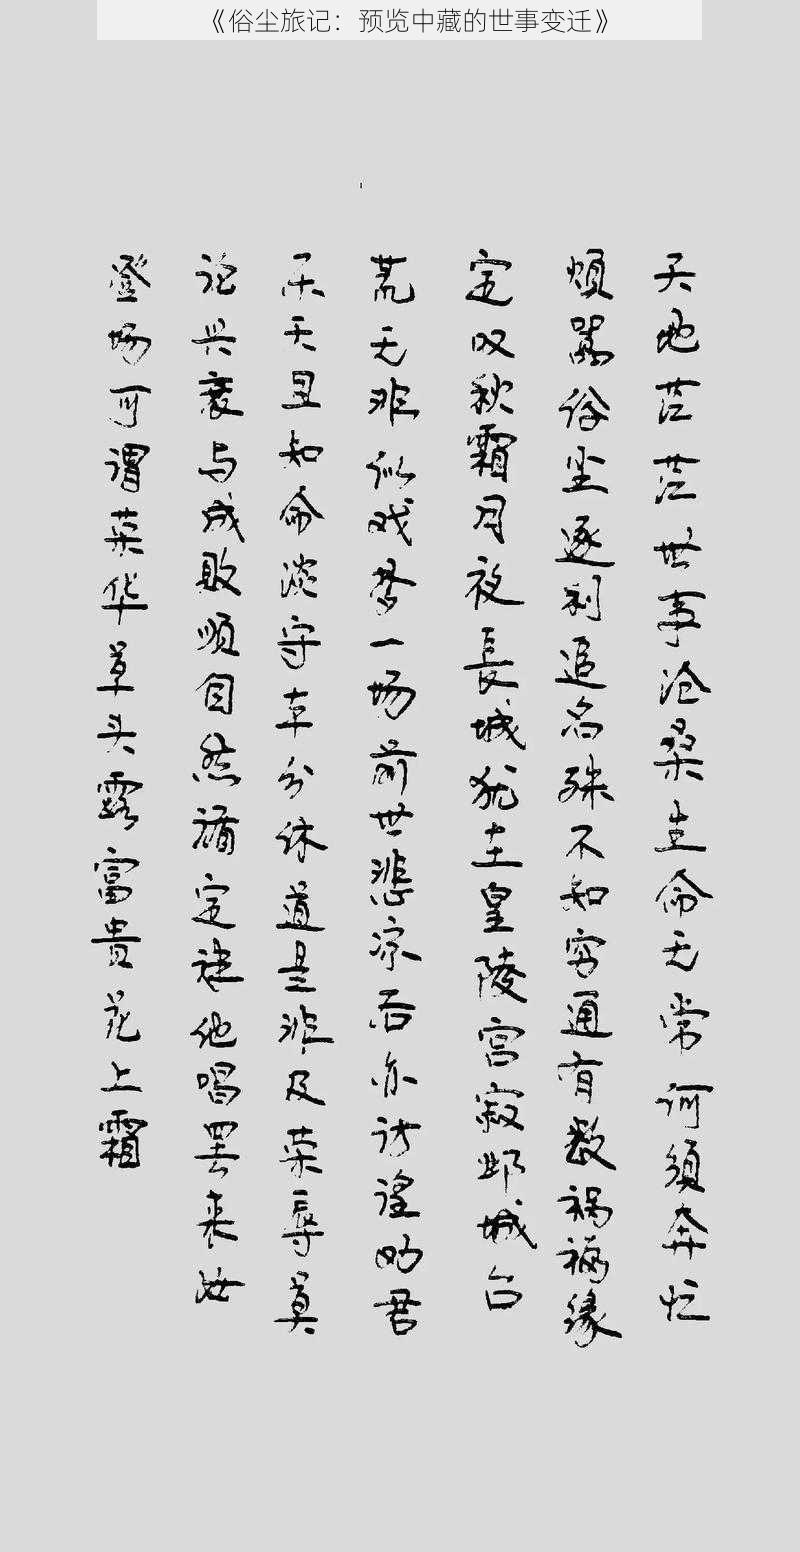 《俗尘旅记：预览中藏的世事变迁》
天地茫茫世事沧桑生命无常何须奔忙
烦嚣俗尘逐利追名殊不知穷通有数祸福缘
定叹秋霜月夜長城犹在皇陵宫寂邺城台
荒无非似戏梦一场前世悲凉后亦彷徨劝君
乐天且知命淡守本分休道是非及荣辱莫
论兴衰与成败顺自然循定律他唱罢来妆
登场可谓荣华草头露富贵花上霜